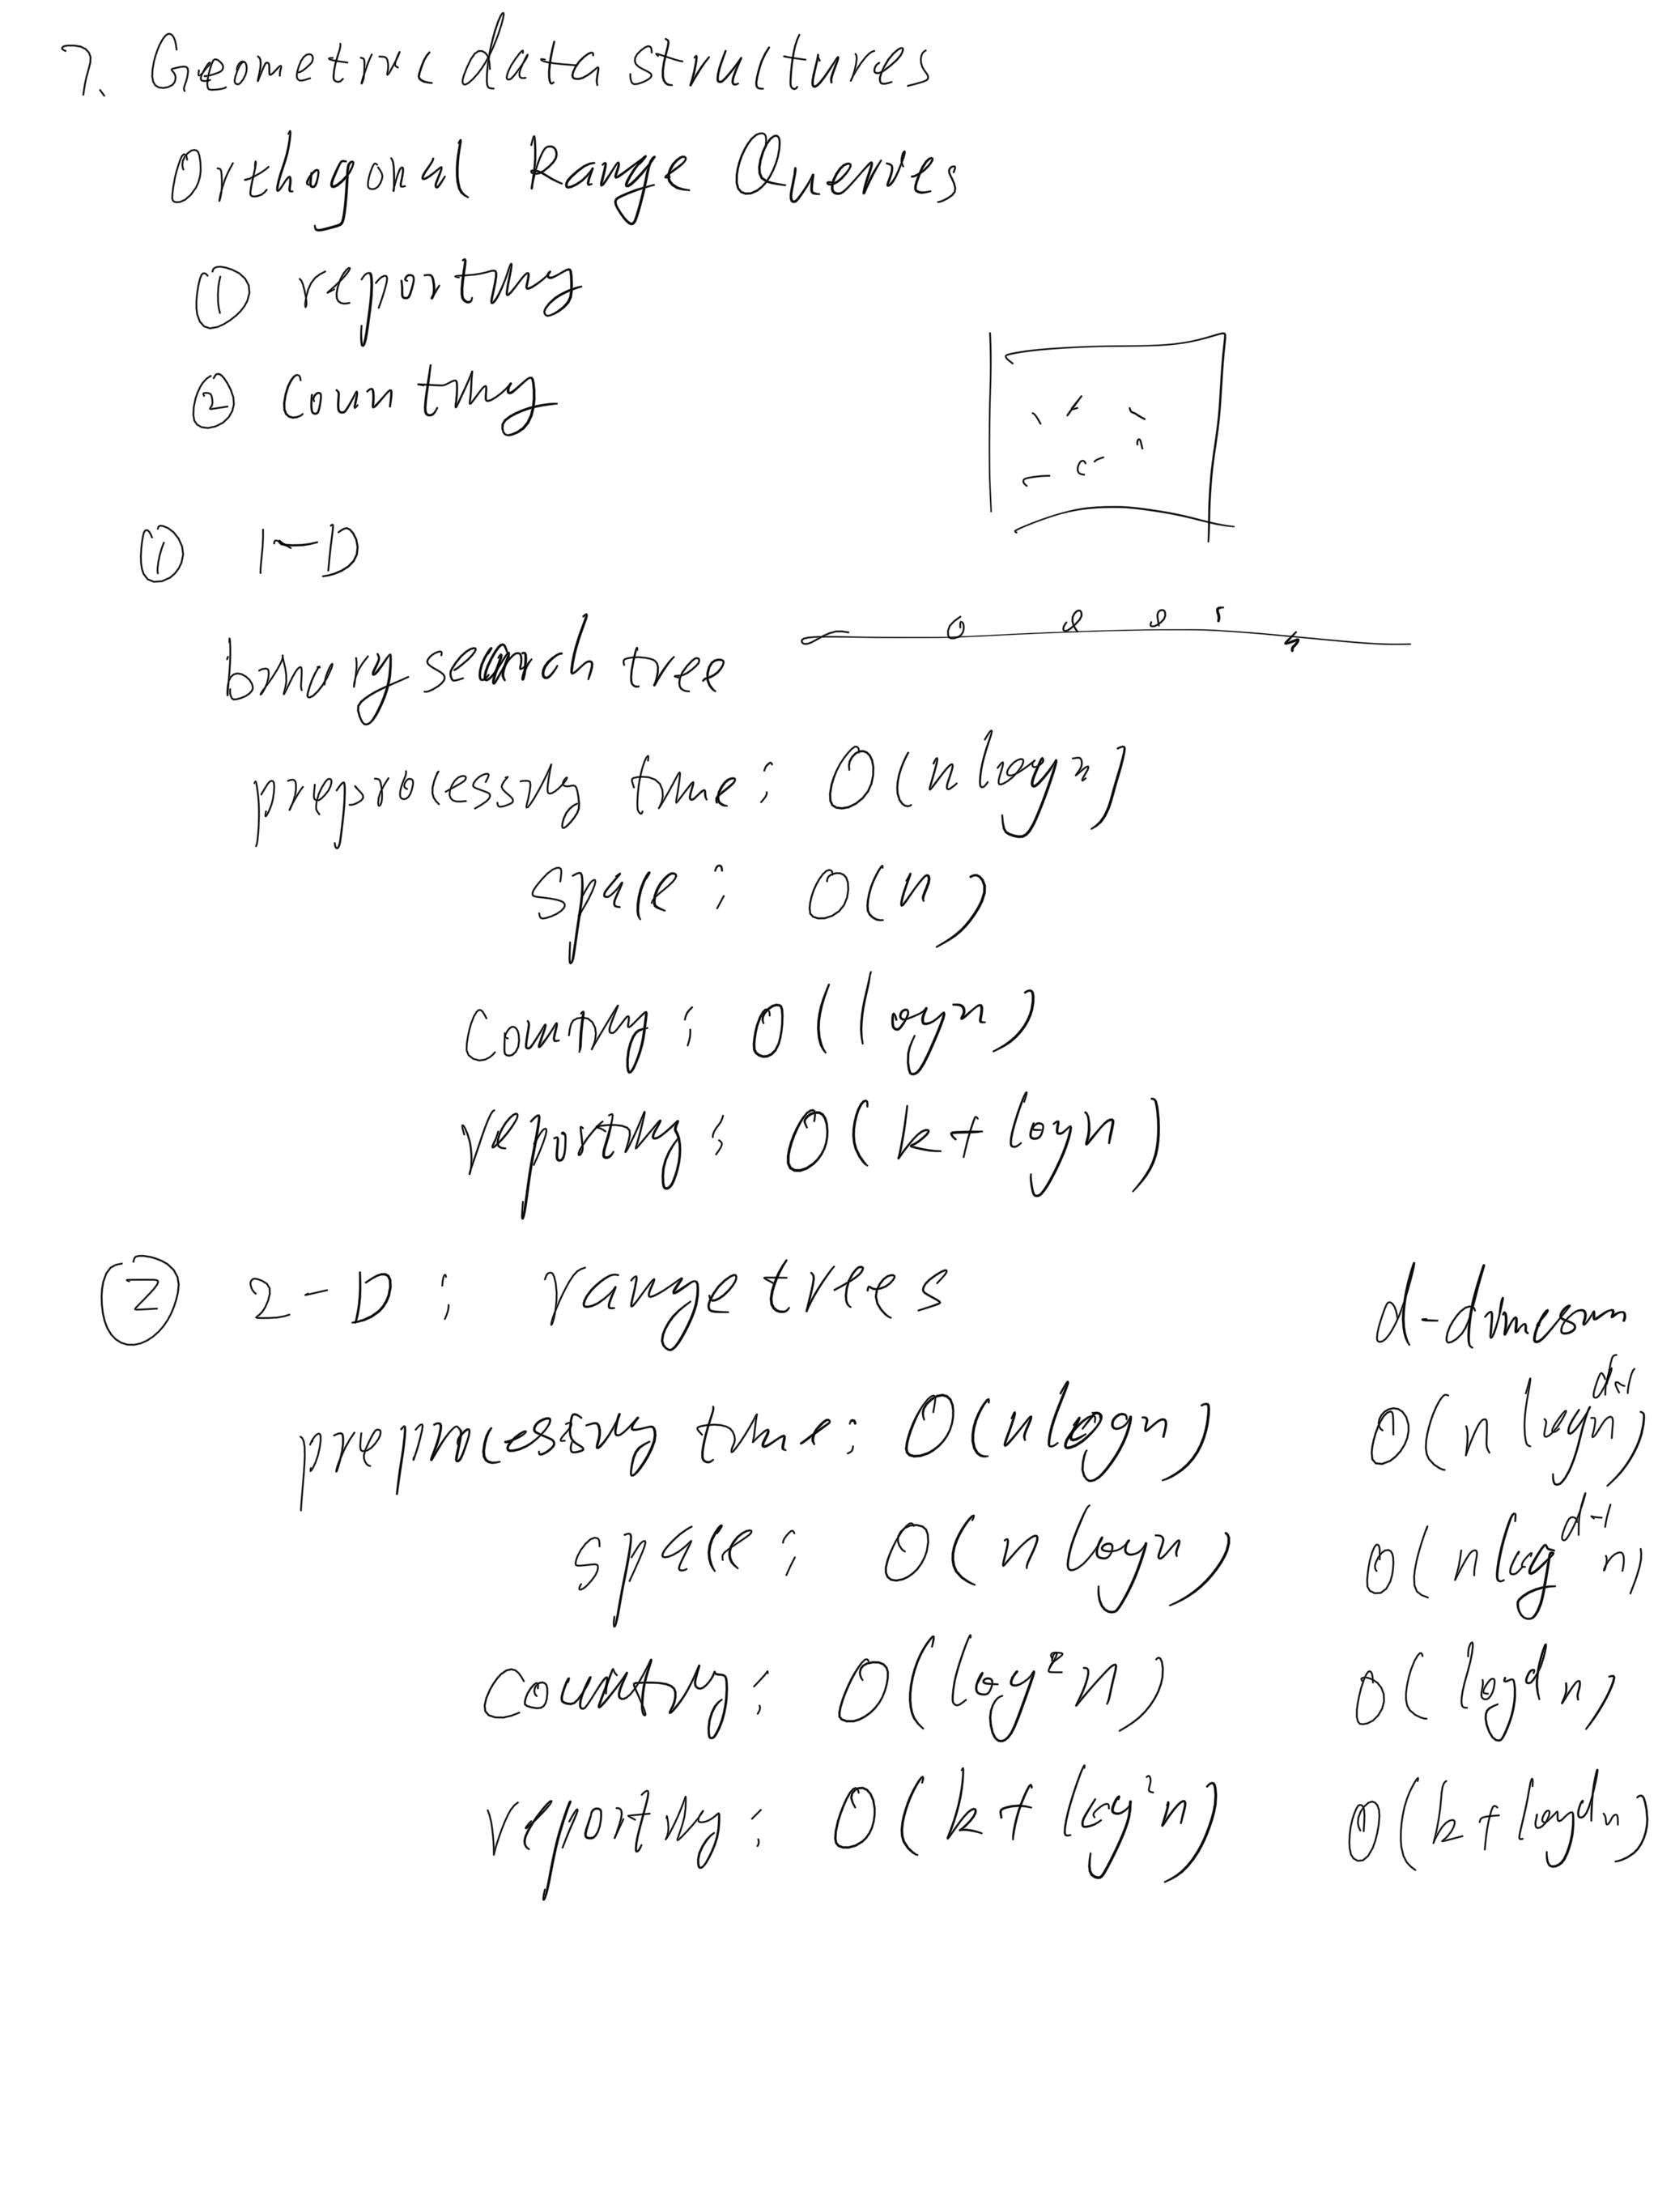 7. Geometric data structures
Orthogonal Range Queries
① reporting
② Counting
① 1-D
binary search tree
preprocessing time: O(n log n)
space: O(n)
counting: O(log n)
reporting: O(k + log n)
② 2-D: range trees d-dimension
preprocessing time: O(n log n) O(n log^{d-1} n)
space: O(n log n) O(n log^{d-1} n)
counting: O(log² n) O(log^d n)
reporting: O(k + log² n) O(k + log^d n)